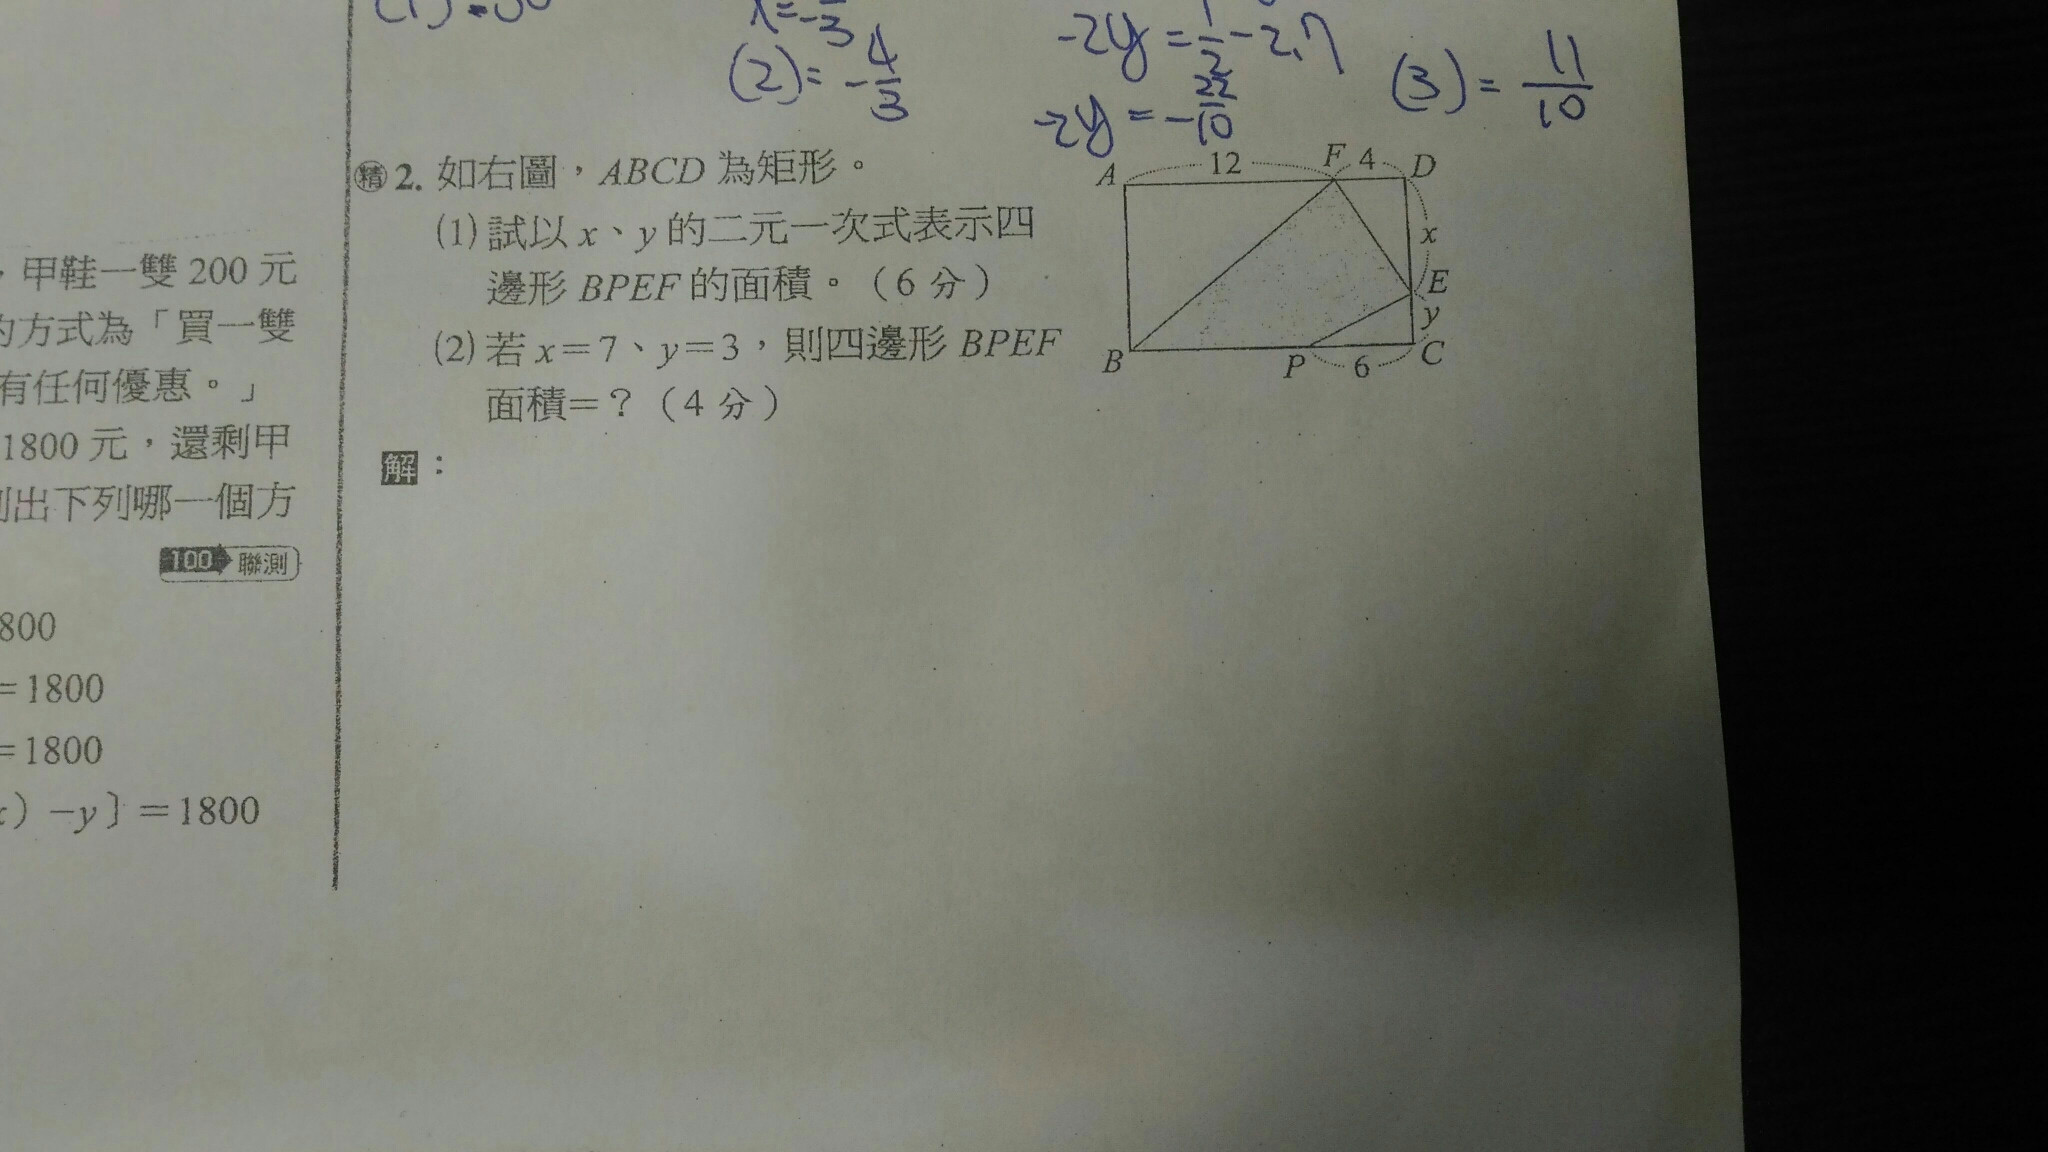 x=-
3
(2)=-4/3
-2y=1/2-2.7
-2y=-22/10
(3)=11/10
，甲鞋一雙 200 元
的方式為「買一雙
有任何優惠。」
1800 元，還剩甲
列出下列哪一個方
100 聯測
800
=1800
=1800
x）-y〕=1800
精 2. 如右圖，ABCD 為矩形。
(1) 試以 x、y 的二元一次式表示四
邊形 BPEF 的面積。（6 分）
(2) 若 x=7、y=3，則四邊形 BPEF
面積=？（4 分）
解：
A 12 F 4 D
x
E
y
B P 6 C